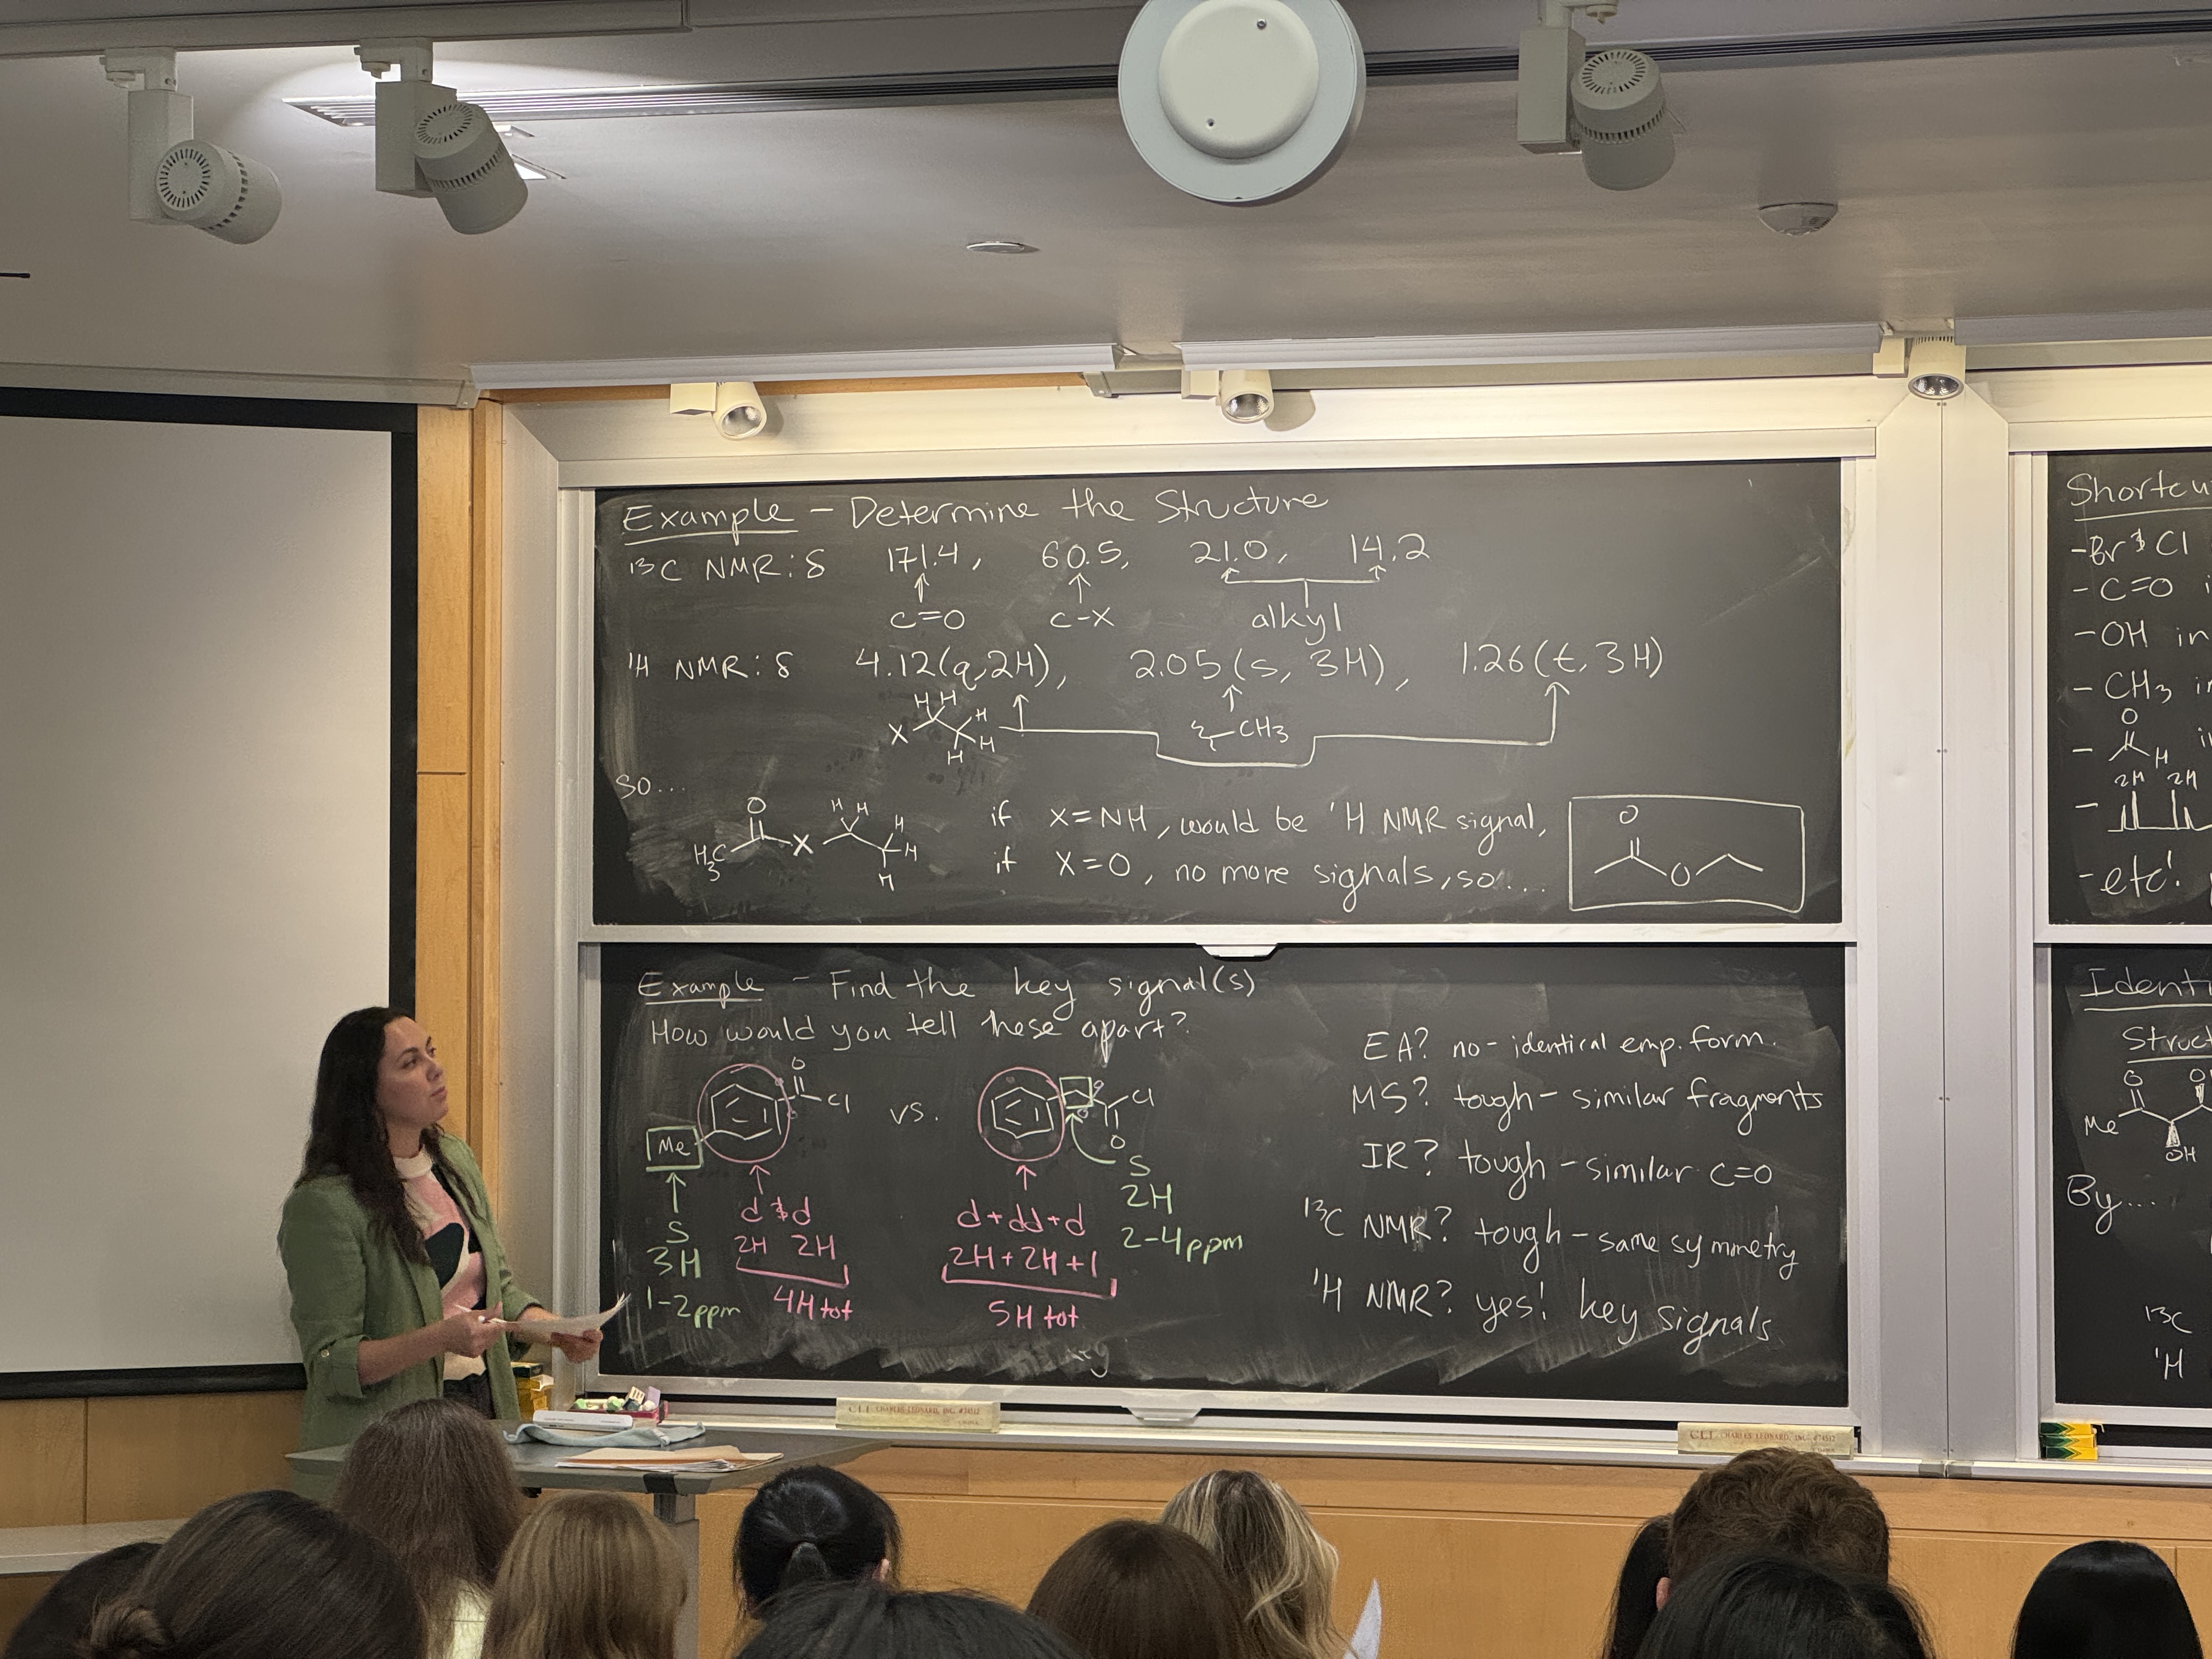 Example - Determine the Structure
13C NMR: δ 171.4, 60.5, 21.0, 14.2
C=O C-X alkyl
1H NMR: δ 4.12 (q, 2H), 2.05 (s, 3H), 1.26 (t, 3H)
H H
X H
H
H
CH3
so...
O H H
H3C X H
H
H
if X=NH, would be 1H NMR signal,
if X=O, no more signals, so...
O
O
Example - Find the key signal(s)
How would you tell these apart?
O
Cl
Me
vs.
Cl
O
S
3H
1-2ppm
d & d
2H 2H
4H tot
d+dd+d
2H+2H+1
5H tot
S
2H
2-4ppm
EA? no - identical emp. form.
MS? tough - similar fragments
IR? tough - similar C=O
13C NMR? tough - same symmetry
1H NMR? yes! key signals
CLI CHARLES LEONARD, INC. #74512
CLI CHARLES LEONARD, INC. #74512
-Br & Cl
-C=O
-OH in
-CH3
O
H
2H 2H
-etc!
O
Me
OH
By...
13C
1H